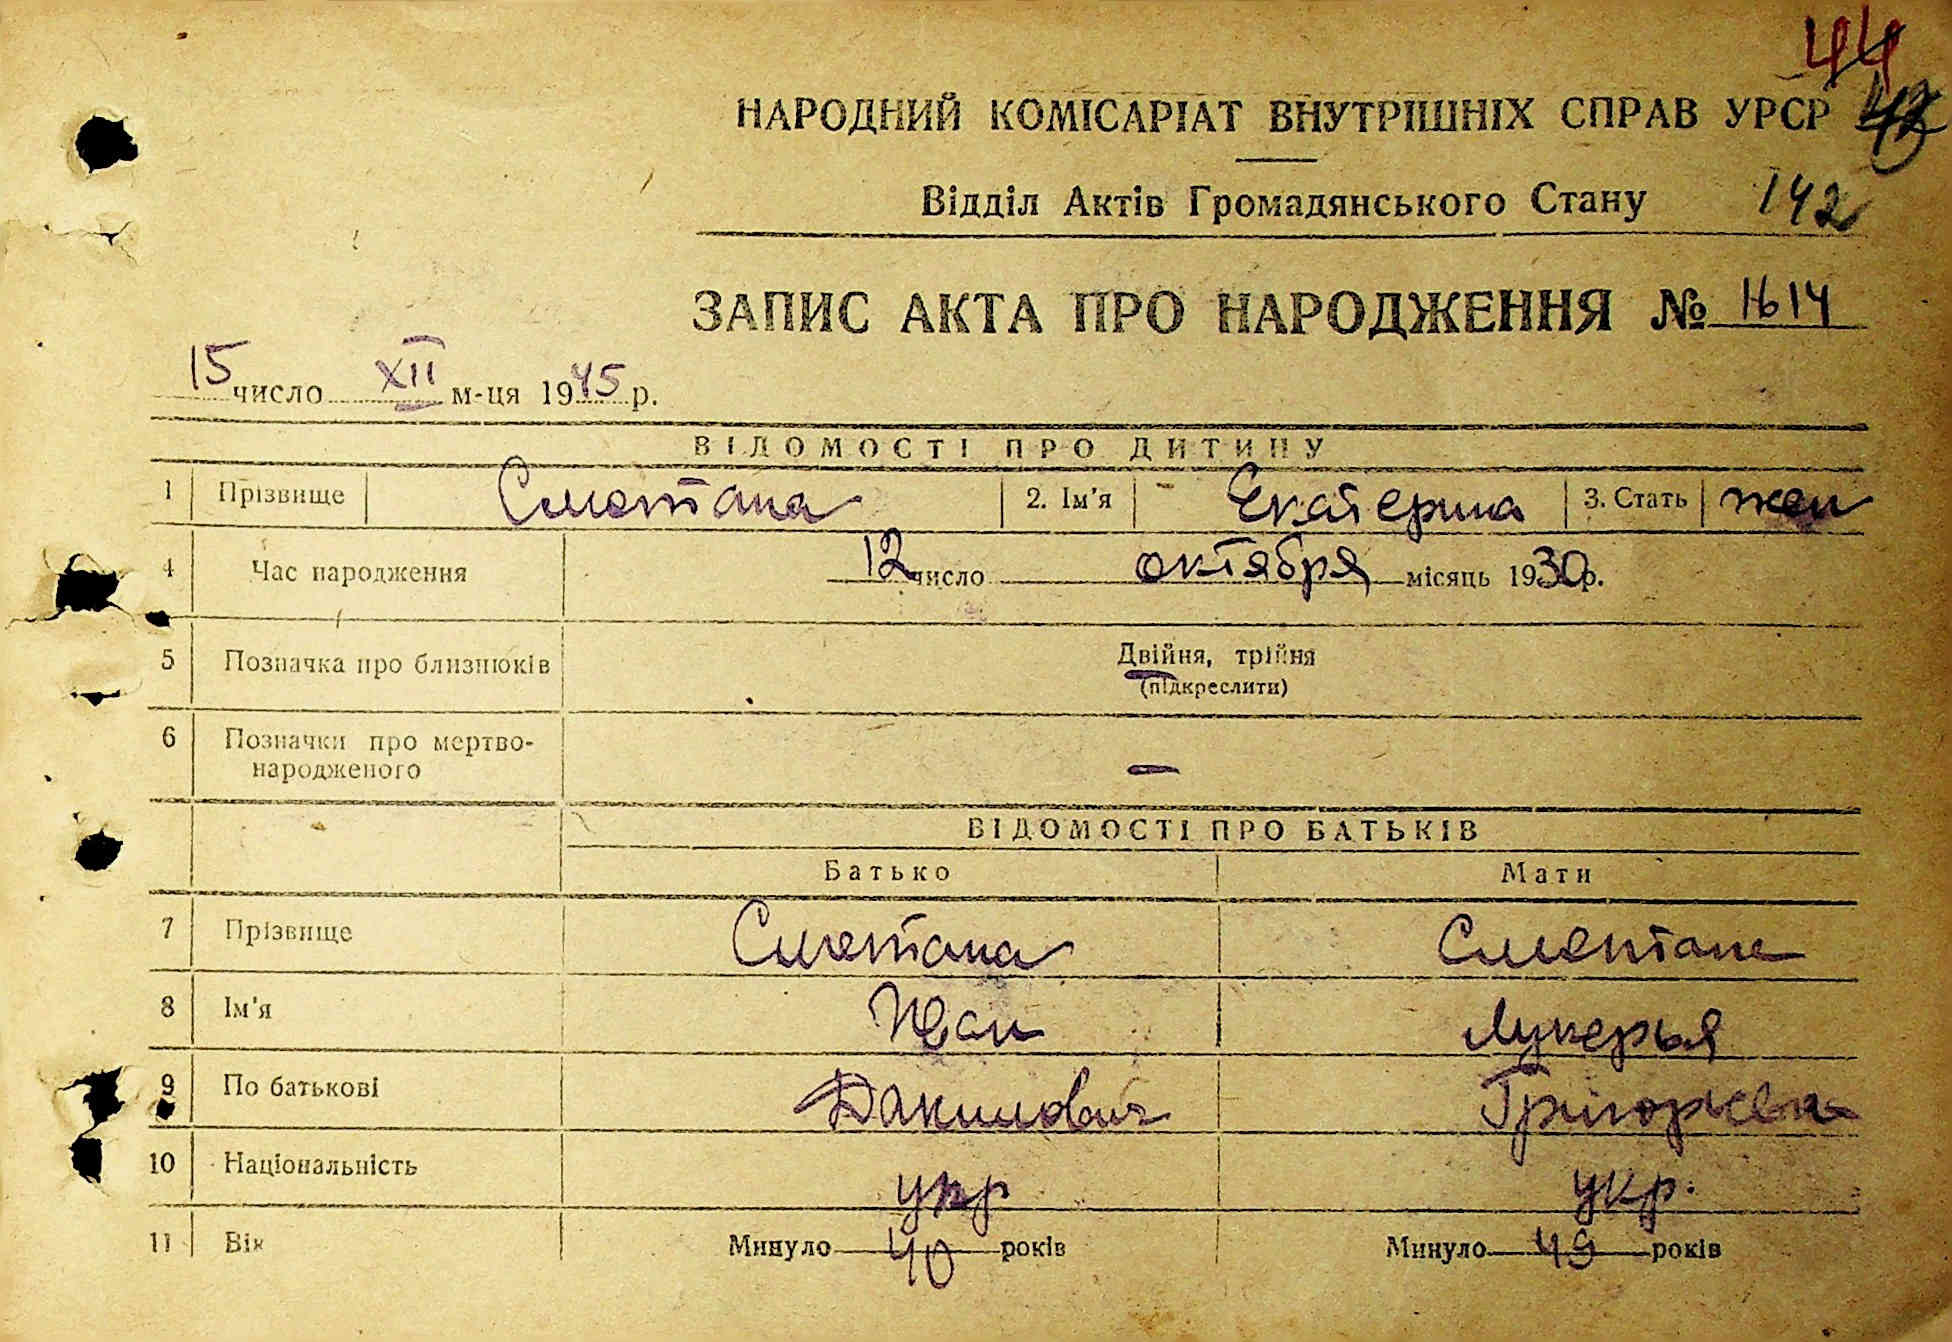 44
НАРОДНИЙ КОМІСАРІАТ ВНУТРІШНІХ СПРАВ УРСР
Відділ Актів Громадянського Стану 142
ЗАПИС АКТА ПРО НАРОДЖЕННЯ № 1614
15 число XII м-ця 1945 р.
ВІДОМОСТІ ПРО ДИТИНУ
1 Прізвище Сметана 2. Ім'я Екатерина 3. Стать жен
4 Час народження 12 число октября місяць 1930 р.
5 Позначка про близнюків Двійня, трійня
(підкреслити)
6 Позначки про мертво-
народженого —
ВІДОМОСТІ ПРО БАТЬКІВ
Батько Мати
7 Прізвище Сметана Сметана
8 Ім'я Иван Лукерья
9 По батькові Данилович Григорьевна
10 Національність укр укр.
11 Вік Минуло 40 років Минуло 49 років